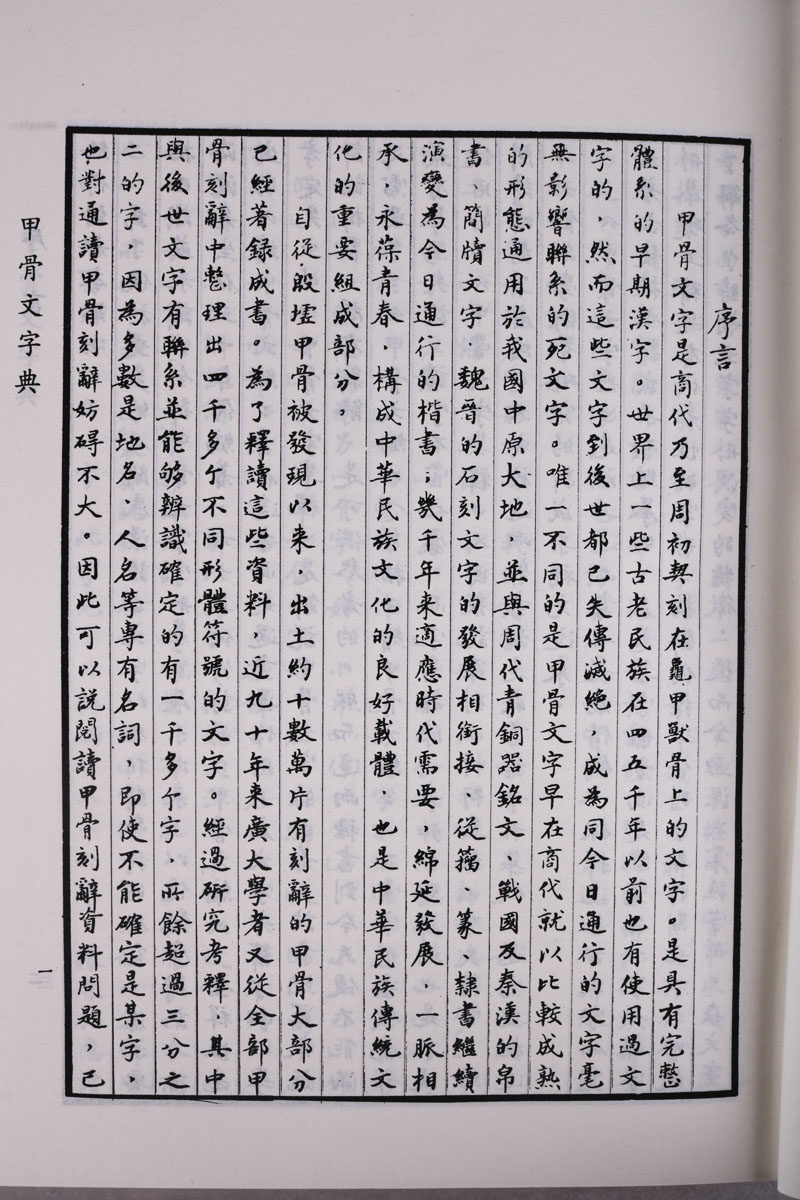 序言
甲骨文字是商代乃至周初契刻在龜甲獸骨上的文字。是具有完整
體系的早期漢字。世界上一些古老民族在四五千年以前也有使用過文
字的，然而這些文字到後世都已失傳滅絕，成為同今日通行的文字毫
無影響聯系的死文字。唯一不同的是甲骨文字早在商代就以比較成熟
的形態通用於我國中原大地，並與周代青銅器銘文、戰國及秦漢的帛
書、簡牘文字、魏晉的石刻文字的發展相銜接、從籀、篆、隸書繼續
演變為今日通行的楷書；幾千年來適應時代需要，綿延發展，一脈相
承，永葆青春，構成中華民族文化的良好載體，也是中華民族傳統文
化的重要組成部分。
自從殷墟甲骨被發現以來，出土約十數萬片有刻辭的甲骨大部分
已經著録成書。為了釋讀這些資料，近九十年來廣大學者又從全部甲
骨刻辭中整理出四千多个不同形體符號的文字。經過研究考釋，其中
與後世文字有聯系並能够辨識確定的有一千多个字，所餘超過三分之
二的字，因為多數是地名、人名等專有名詞，即使不能確定是某字，
也對通讀甲骨刻辭妨碍不大。因此可以說閱讀甲骨刻辭資料問題，已
甲骨文字典
一